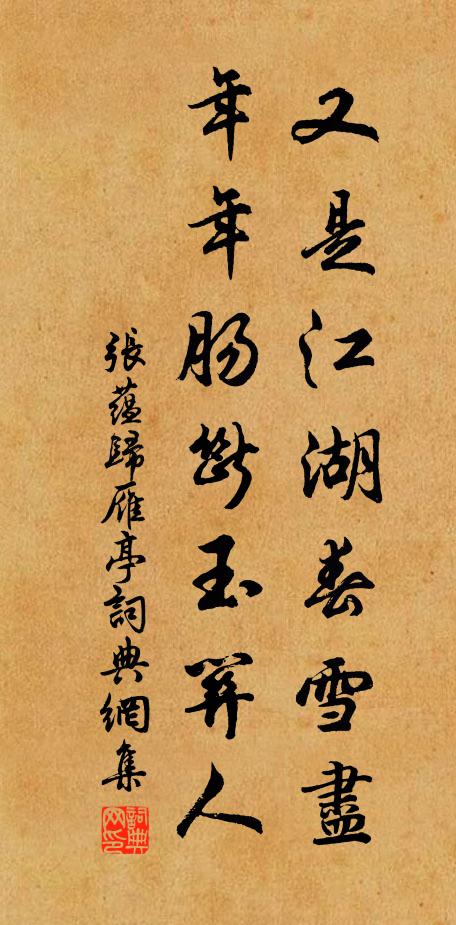 又是江湖春雪盡
年年腸斷玉關人
張蘊歸雁亭詞典網集
詞典网印